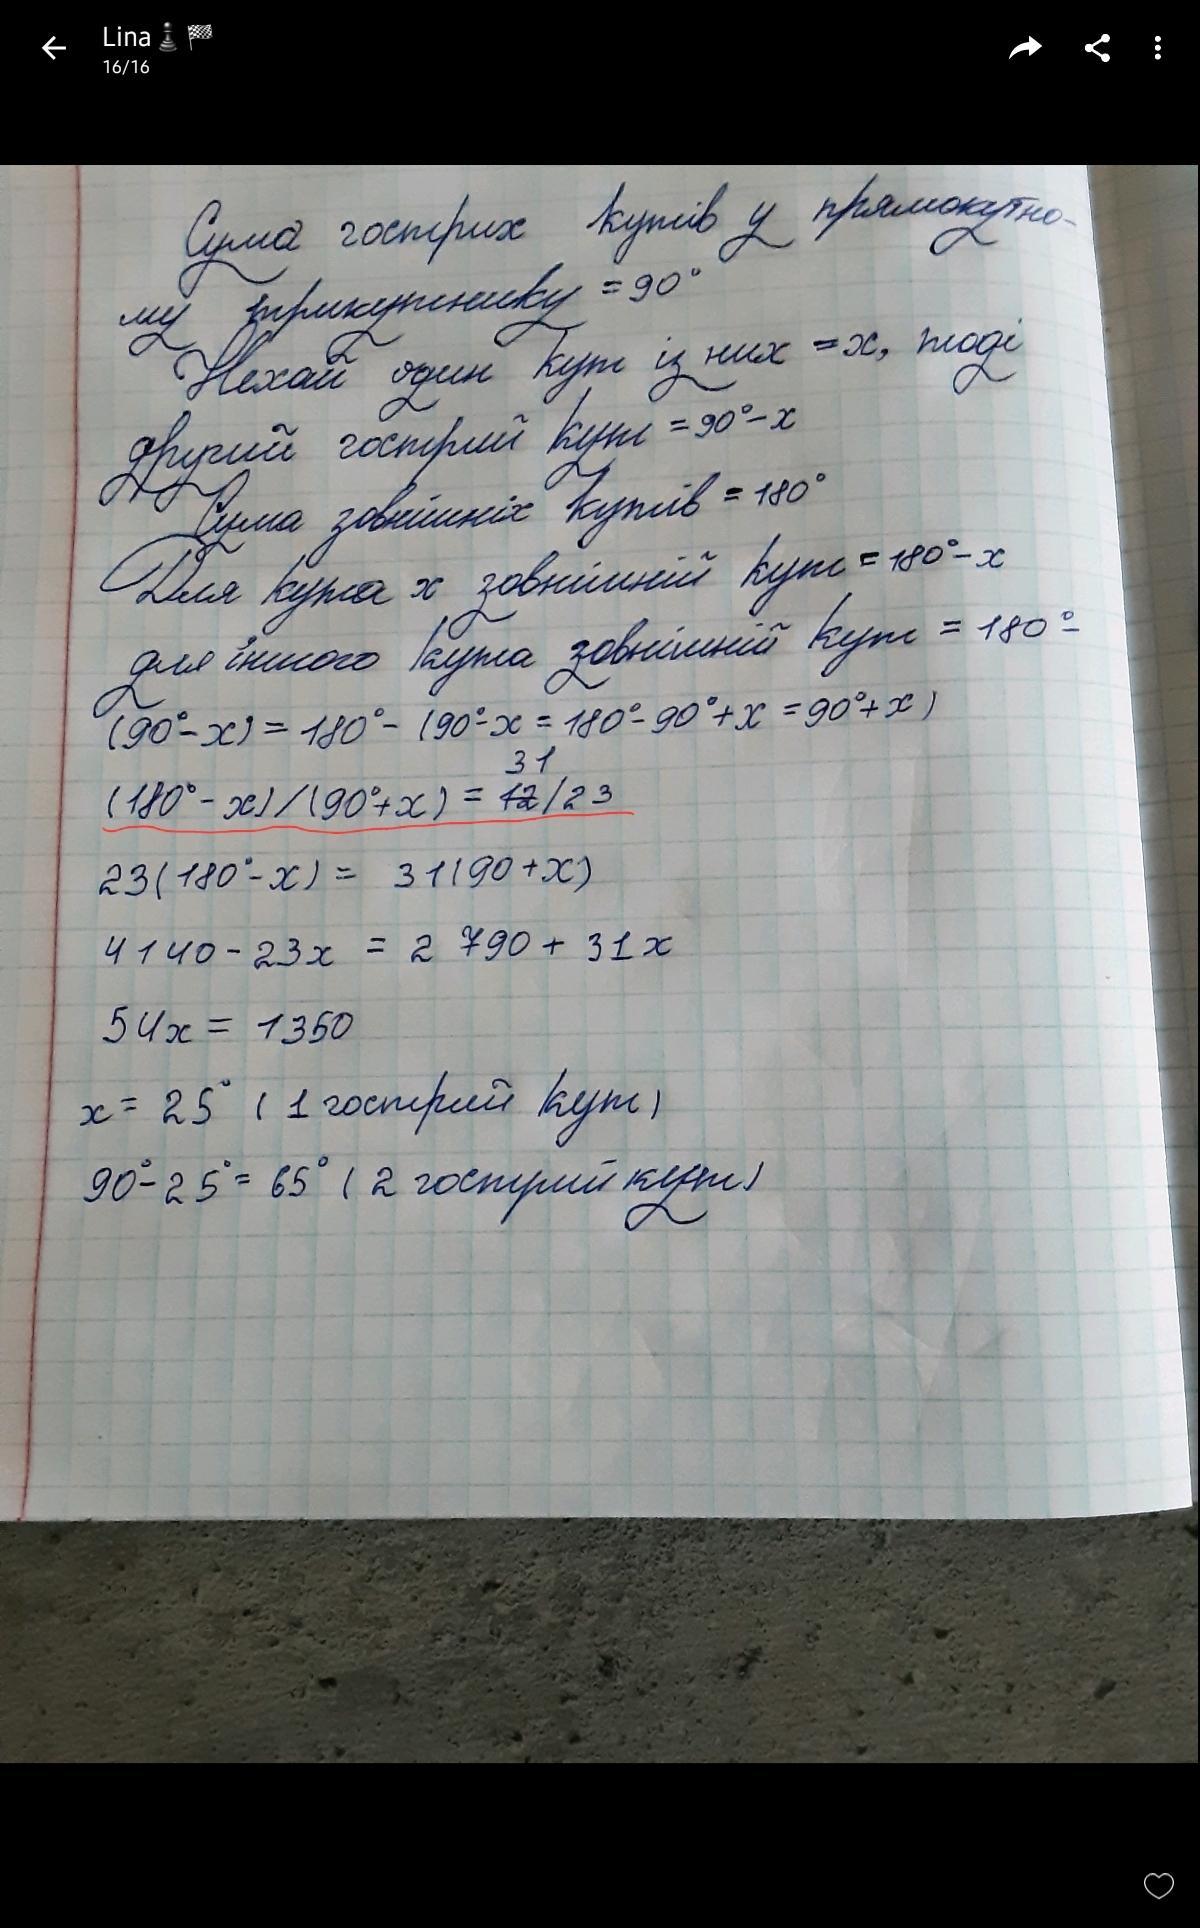 Lina♟️🏁
16/16
Сума гострих кутів у прямокутно-
му трикутнику = 90°
Нехай один кут із них = x, тоді
другий гострий кут = 90° - x
Сума зовнішніх кутів = 180°
Для кута x зовнішній кут = 180° - x
для іншого кута зовнішній кут = 180° -
(90° - x) = 180° - (90° - x = 180° - 90° + x = 90° + x)
31
(180° - x) / (90° + x) = 12/23
23(180° - x) = 31(90 + x)
4140 - 23x = 2 790 + 31x
54x = 1350
x = 25° (1 гострий кут)
90° - 25° = 65° (2 гострий кут)